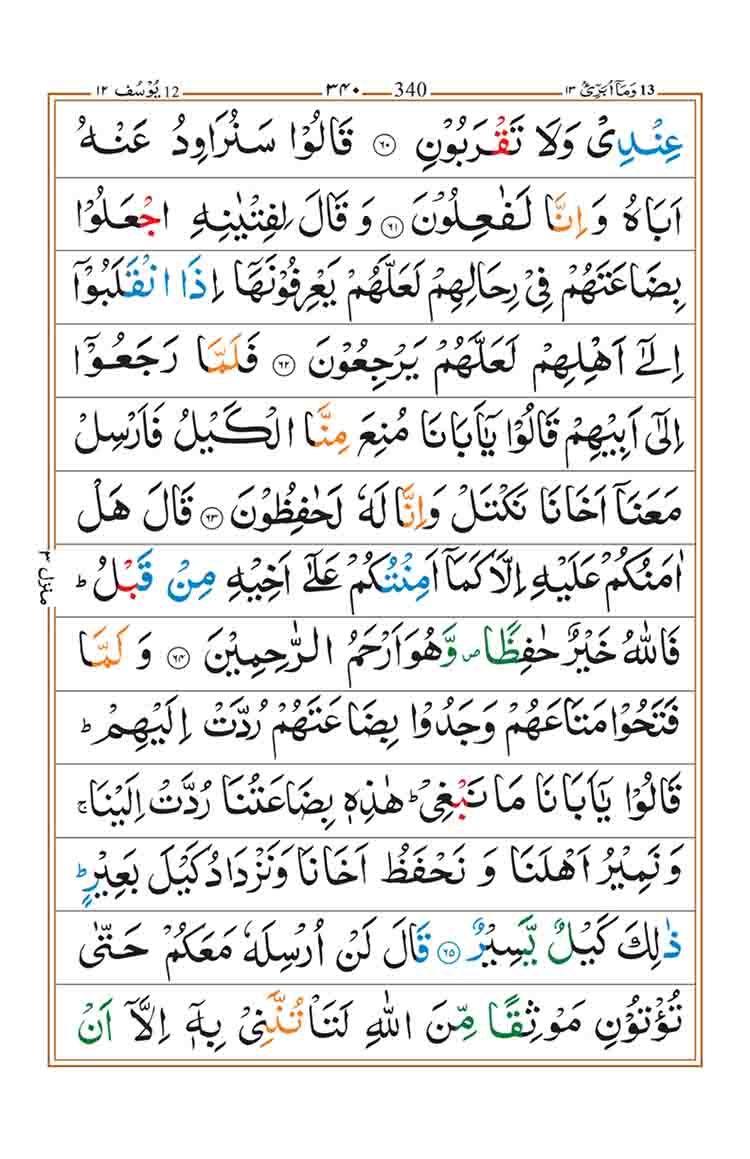 13 وَمَاۤ اُبَرِّئُ ۱۳ 340 ۳۴۰ 12 يُوْسُف ۱۲
عِنْدِىْ وَلَا تَقْرَبُوْنِ ۶۰ قَالُوْا سَنُرَاوِدُ عَنْهُ
اَبَاهُ وَ اِنَّا لَفٰعِلُوْنَ ۶۱ وَ قَالَ لِفِتْيٰنِهِ اجْعَلُوْا
بِضَاعَتَهُمْ فِىْ رِحَالِهِمْ لَعَلَّهُمْ يَعْرِفُوْنَهَاۤ اِذَا انْقَلَبُوْۤا
اِلٰٓى اَهْلِهِمْ لَعَلَّهُمْ يَرْجِعُوْنَ ۶۲ فَلَمَّا رَجَعُوْۤا
اِلٰٓى اَبِيْهِمْ قَالُوْا يٰۤاَبَانَا مُنِعَ مِنَّا الْكَيْلُ فَاَرْسِلْ
مَعَنَاۤ اَخَانَا نَكْتَلْ وَاِنَّا لَهٗ لَحٰفِظُوْنَ ۶۳ قَالَ هَلْ
اٰمَنُكُمْ عَلَيْهِ اِلَّا كَمَاۤ اَمِنْتُكُمْ عَلٰٓى اَخِيْهِ مِنْ قَبْلُ ؕ
فَاللّٰهُ خَيْرٌ حٰفِظًا ۪ وَّهُوَ اَرْحَمُ الرّٰحِمِيْنَ ۶۴ وَ لَمَّا
فَتَحُوْا مَتَاعَهُمْ وَجَدُوْا بِضَاعَتَهُمْ رُدَّتْ اِلَيْهِمْ ؕ
قَالُوْا يٰۤاَبَانَا مَا نَبْغِىْ ؕ هٰذِهٖ بِضَاعَتُنَا رُدَّتْ اِلَيْنَا ۚ
وَنَمِيْرُ اَهْلَنَا وَ نَحْفَظُ اَخَانَا وَنَزْدَادُ كَيْلَ بَعِيْرٍ ؕ
ذٰلِكَ كَيْلٌ يَّسِيْرٌ ۶۵ قَالَ لَنْ اُرْسِلَهٗ مَعَكُمْ حَتّٰى
تُؤْتُوْنِ مَوْثِقًا مِّنَ اللّٰهِ لَتَاْتُنَّنِىْ بِهٖۤ اِلَّاۤ اَنْ
منزل ۳